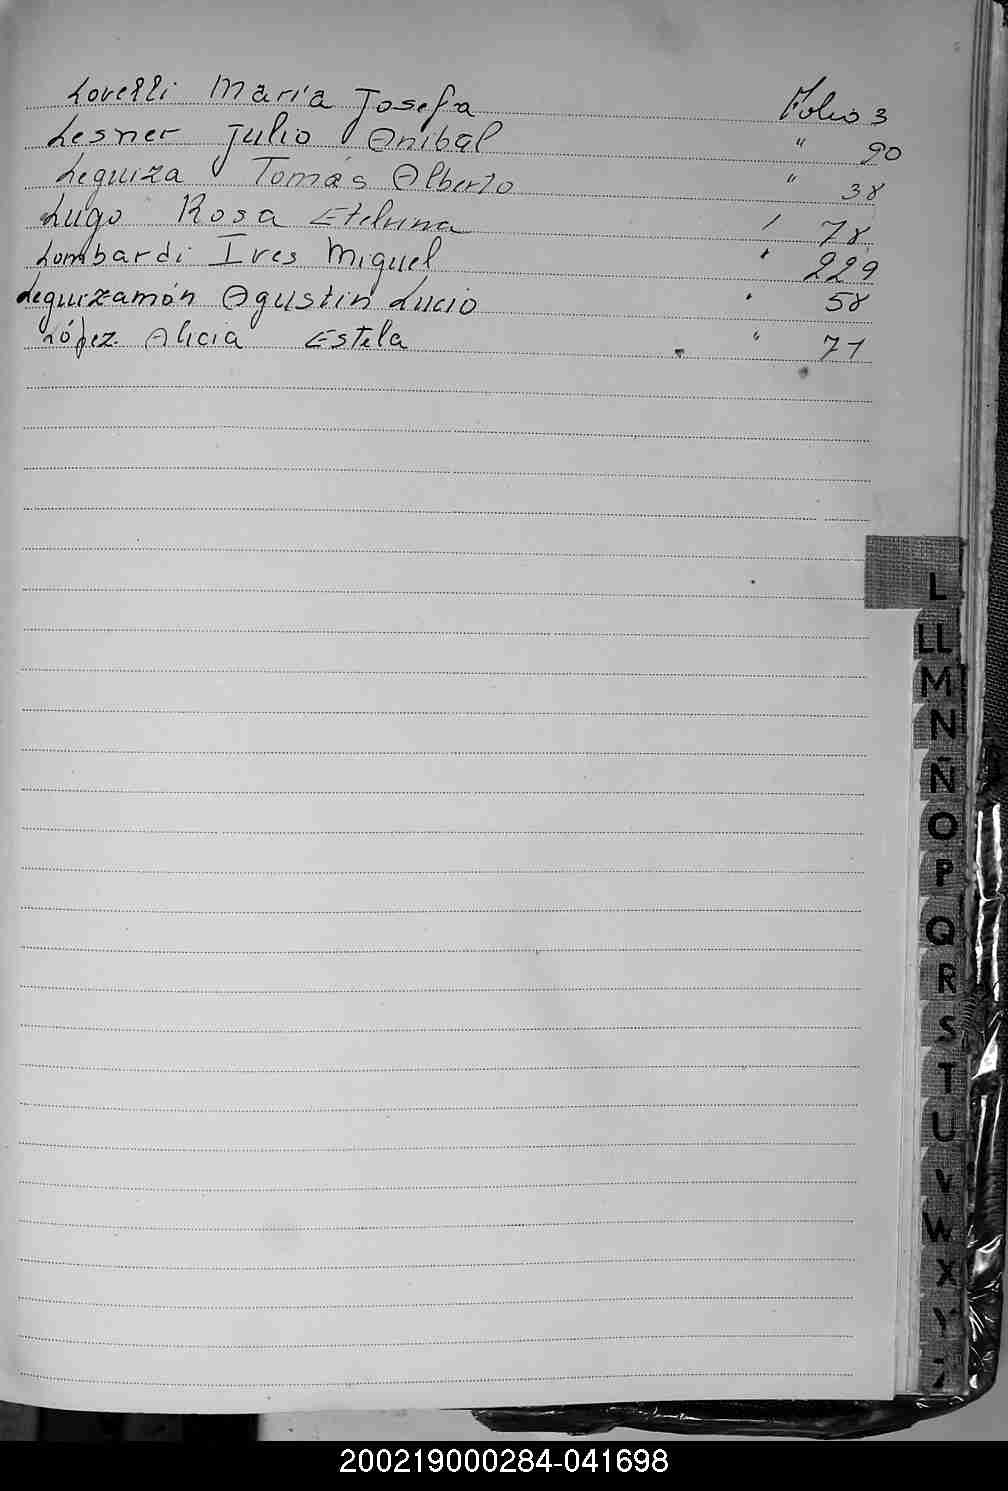 Lovelli María Josefa Folio 3
Lesner Julio Anibal " 90
Leguiza Tomás Alberto " 38
Lugo Rosa Etelvina " 78
Lombardi Ives Miguel " 229
Leguizamón Agustin Lucio " 58
López Alicia Estela " 71
L
LL
M
N
Ñ
O
P
Q
R
S
T
U
V
W
X
Y
Z
200219000284-041698